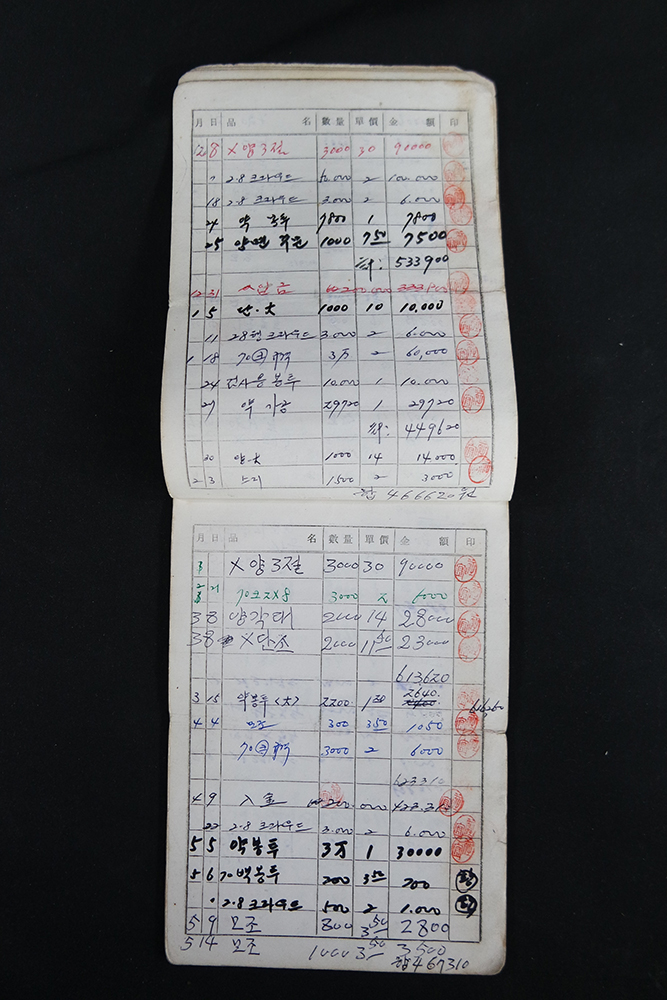 月 日 品 名 數量 單價 金 額 印
12 8 X양3절 3000 30 90000
7 2.8 크라우드 2 100.000
18 2.8 크라우드 3.000 2 6.000
24 약 7800 1 7800
25 양면 1000 7.50 7500
계: 533900
12 31 200.000
1 5 1000 10 10,000
11 28 크라우드 3.000 2 6.000
1 18 70 3万 2 60,000
24 봉투 10.000 1 10.000
27 약 가금 29720 1 29720
계: 449620
30 1000 14 14000
2 3 1500 2 3000
합 466620원
月 日 品 名 數量 單價 金 額 印
3 X양3절 3000 30 90000
21 3000 2 6000
3 8 양각대 2000 14 28000
3 8 X단조 2000 11.50 23000
613620
3 15 약봉투<大> 2200 1.20 2640
616260
4 4 모조 300 3.50 1050
70 3000 2 6000
623310
4 9 入金 200.000 423.310
22 2.8 크라우드 3.000 2 6.000
5 5 약봉투 3万 1 30000
5 6 70백봉투 200 3.50 700
2.8 크라우드 500 2 1.000
5 9 모조 800 3.50 2800
5 14 모조 1000 3.50 3500
합 467310